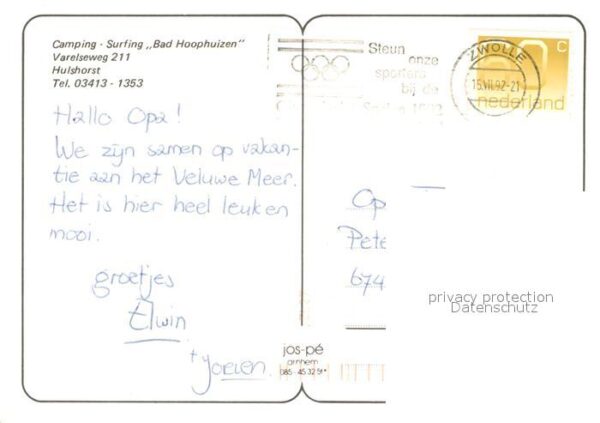 Camping · Surfing „Bad Hoophuizen"
Varelseweg 211
Hulshorst
Tel. 03413 - 1353
Hallo Opa!
We zijn samen op vakan-
tie aan het Veluwe Meer.
Het is hier heel leuk en
mooi.
groetjes
Elwin
+ Joreen.
Steun
onze
sporters
bij de
1992
ZWOLLE
15.VII.92-21
C
nederland
Op
Pete
674
privacy protection
Datenschutz
jos-pé
arnhem